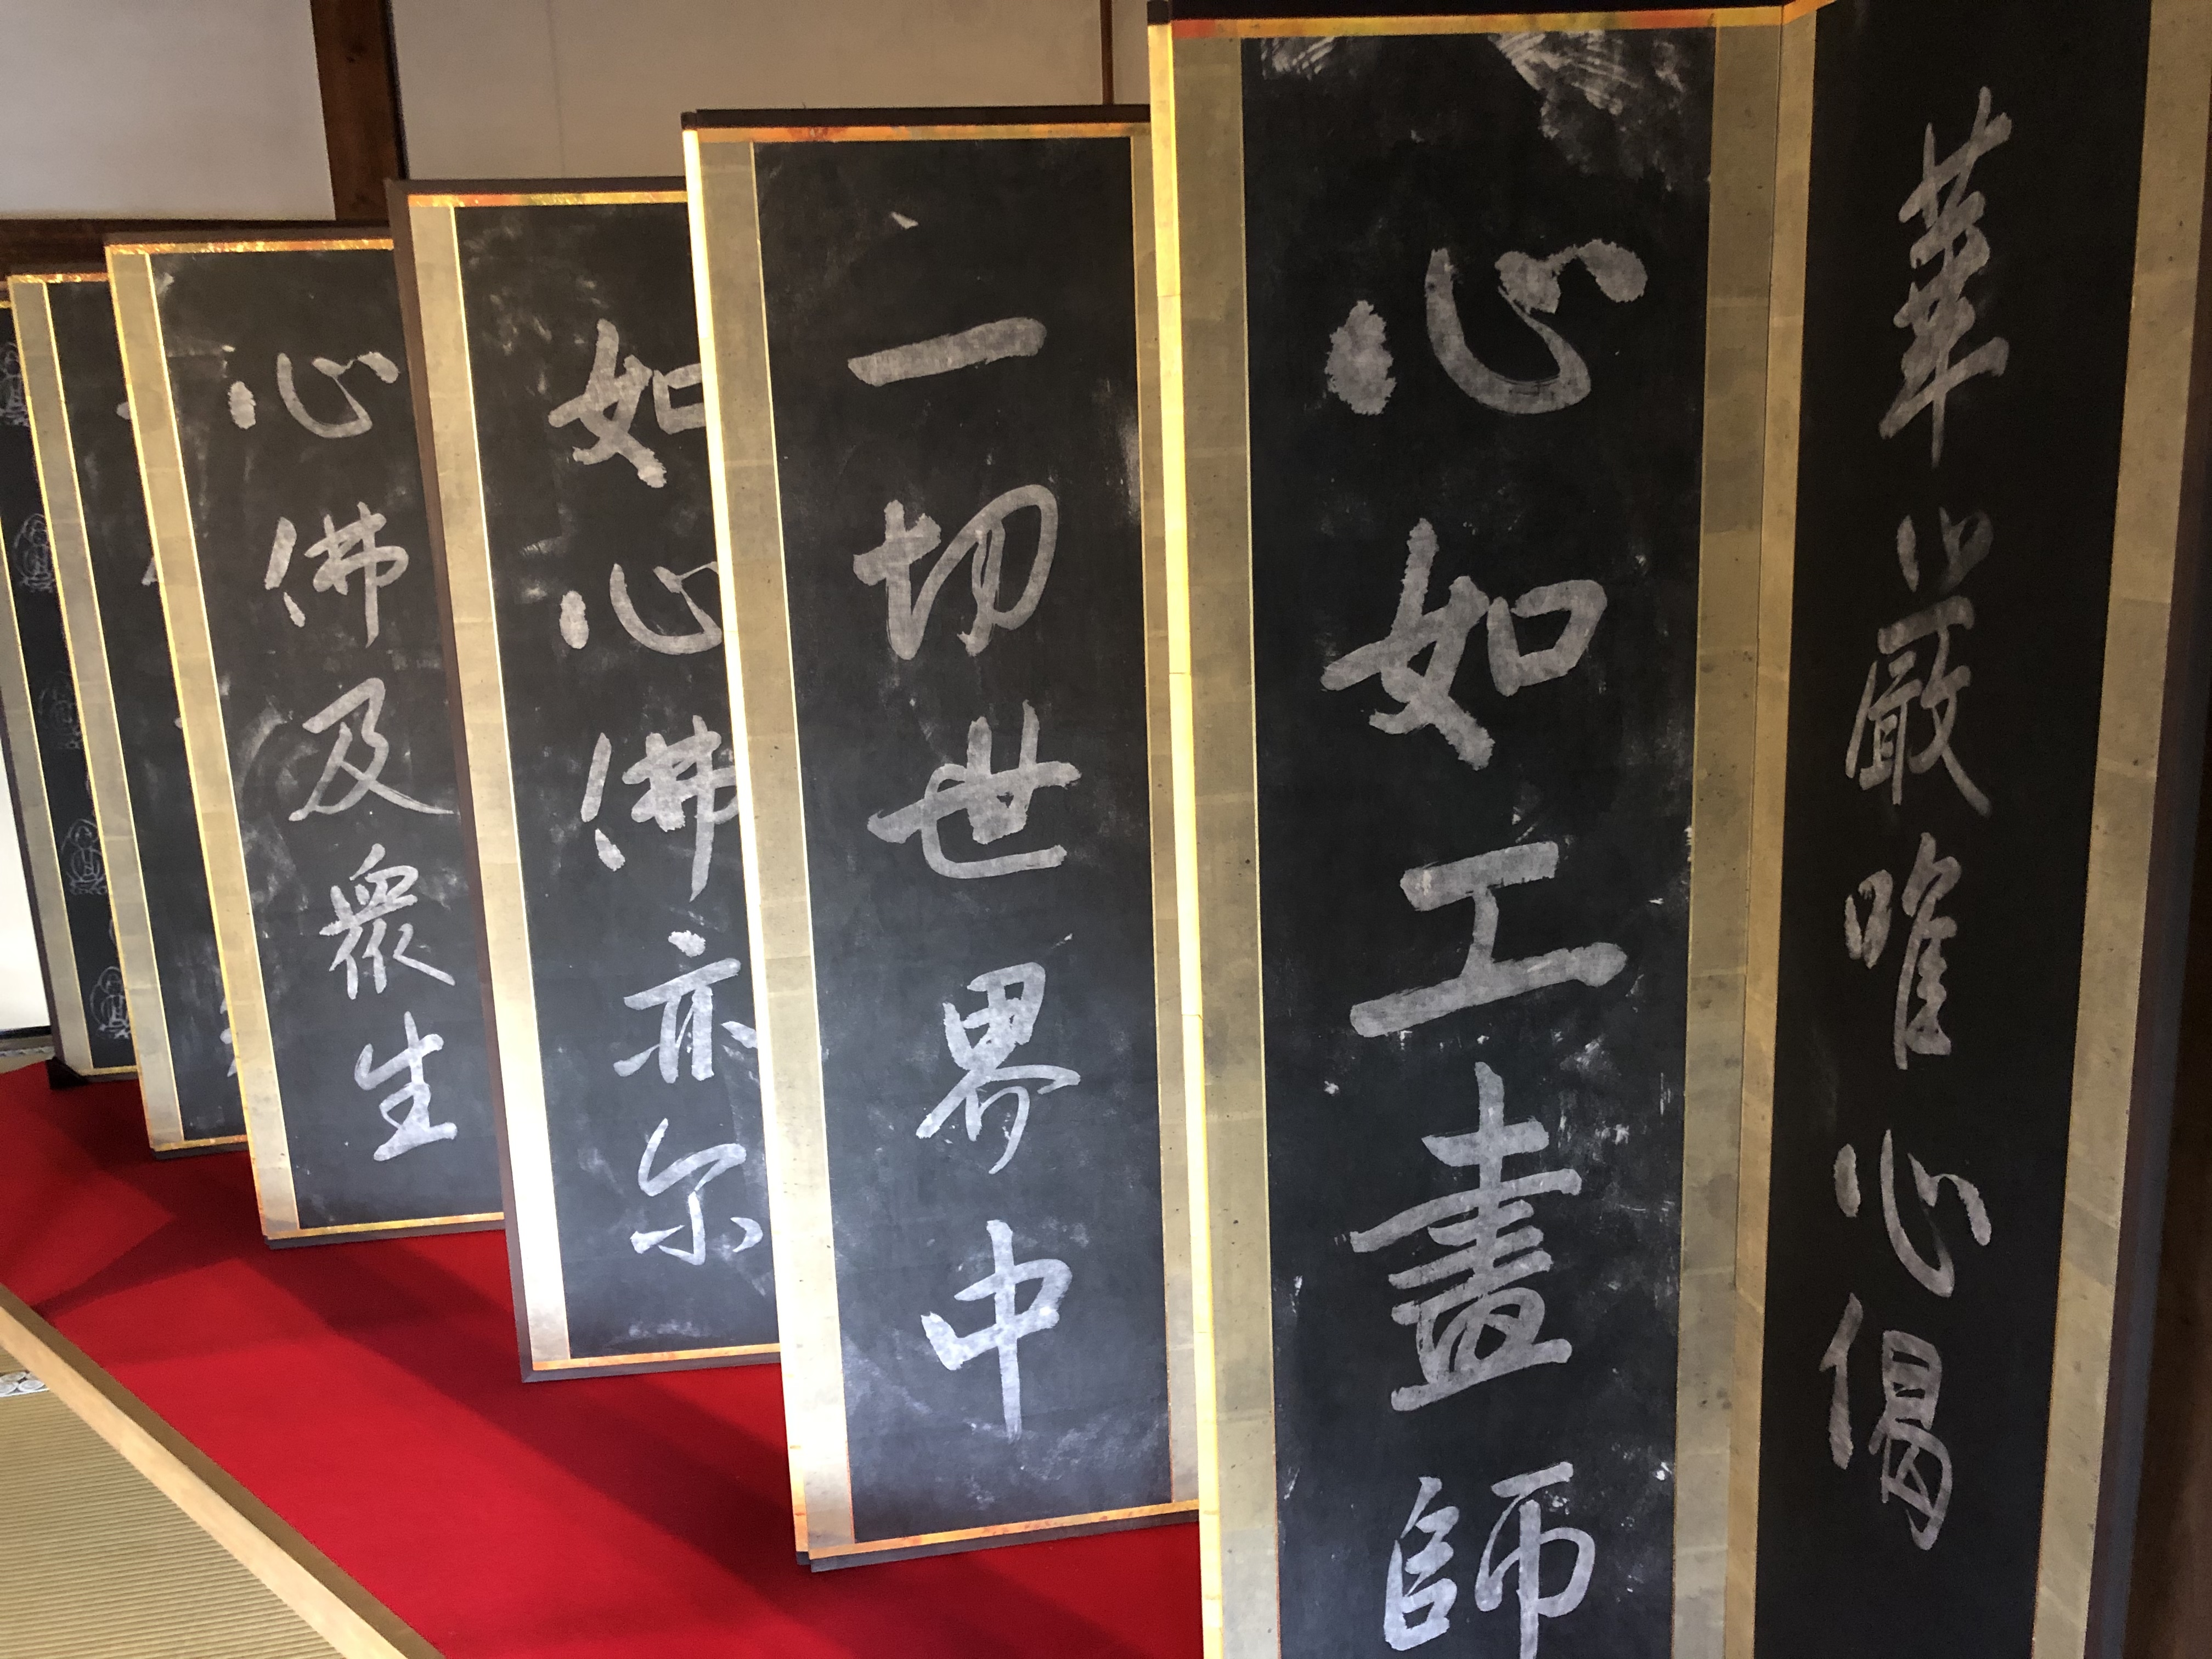 華嚴唯心偈
心如工畫師
一切世界中
如心佛亦尔
心佛及衆生